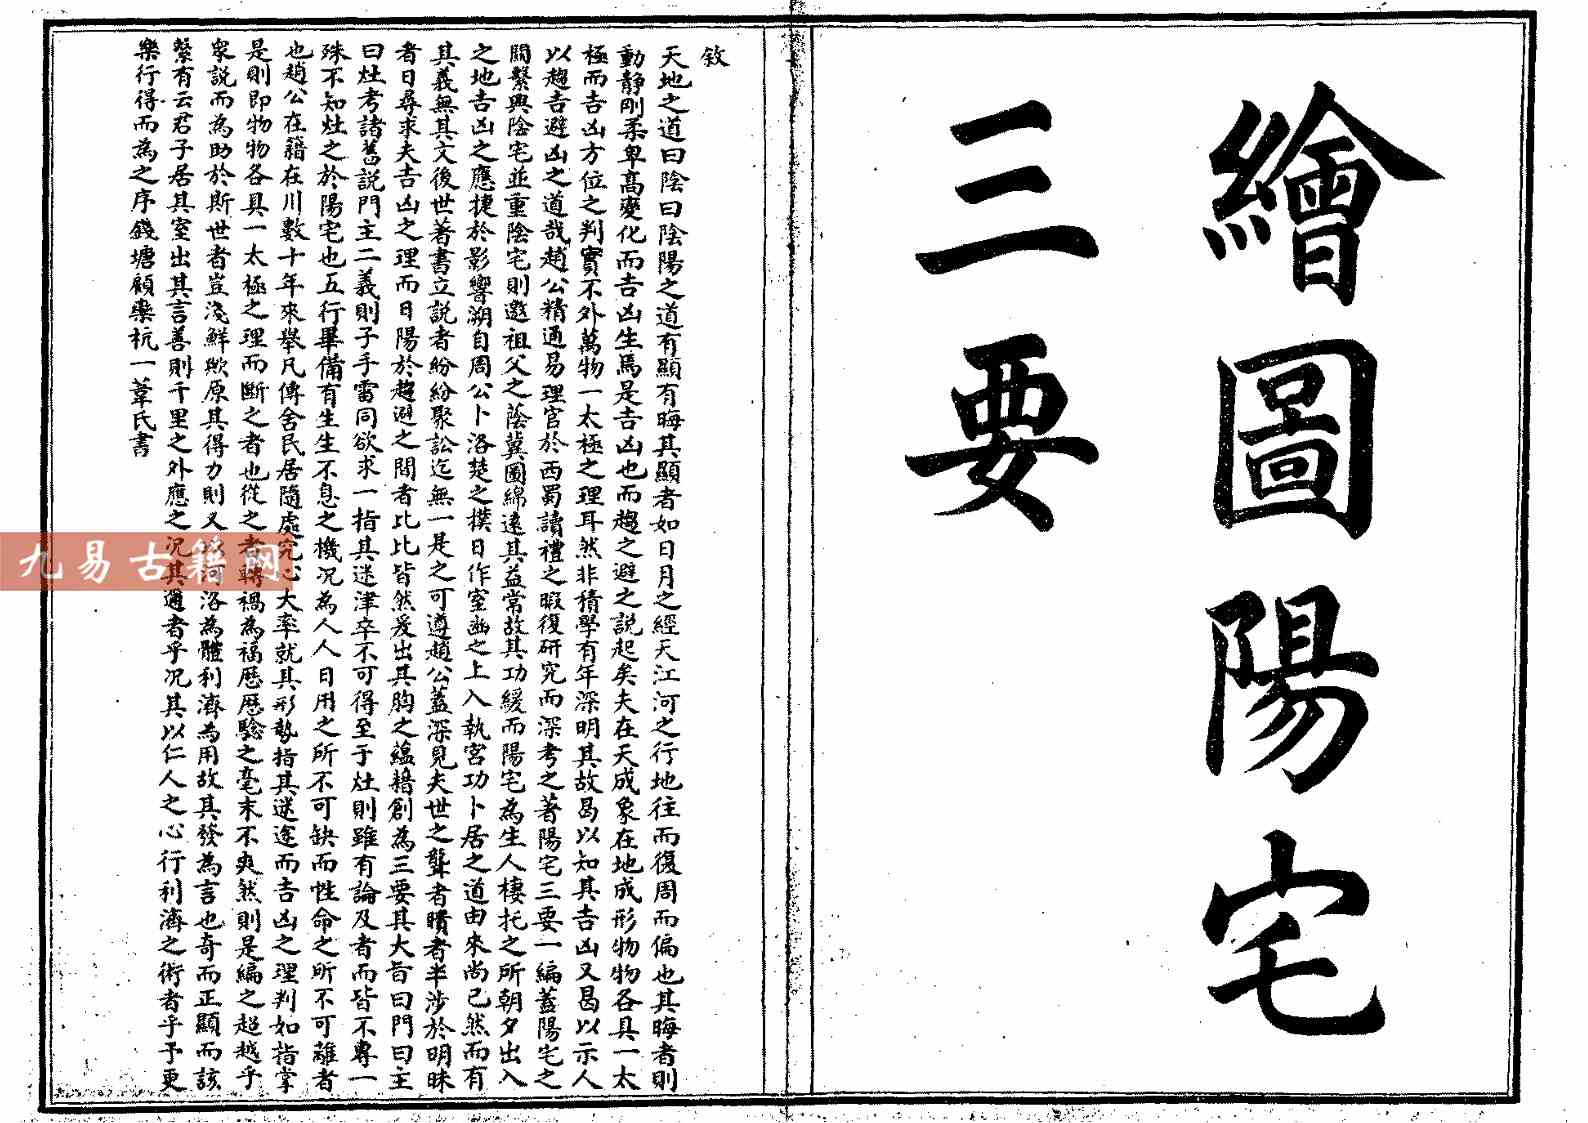 繪圖陽宅
三要
敘
天地之道曰陰曰陰陽之道有顯有晦其顯者如日月之經天江河之行地往而復周而偏也其晦者則
動靜剛柔卑高變化而吉凶生焉是吉凶也而趨之避之說起矣夫在天成象在地成形物物各具一太
極而吉凶方位之判實不外萬物一太極之理耳然非積學有年深明其故曷以知其吉凶又曷以示人
以趨吉避凶之道哉趙公精通易理官於西蜀讀禮之暇復研究而深考之著陽宅三要一編蓋陽宅之
關繫與陰宅並重陰宅則邀祖父之蔭冀圖綿遠其益常故其功緩而陽宅為生人棲托之所朝夕出入
之地吉凶之應捷於影響溯自周公卜洛楚之撲日作室之上入執宮功卜居之道由來尚已然而有
其義無其文後世著書立說者紛紛聚訟迄無一是之可遵趙公蓋深見夫世之聾者瞶者半涉於明昧
者日尋求夫吉凶之理而日陽於趨避之閒者比比皆然爰出其胸之蘊藉創為三要其大旨曰門曰主
曰灶考諸舊說門主二義則子手雷同欲求一指其迷津卒不可得至于灶則雖有論及者而皆不專一
殊不知灶之於陽宅也五行畢備有生生不息之機況為人人日用之所不可缺而性命之所不可離者
也趙公在籍在川數十年來舉凡傳舍民居隨處究心大率就其形勢指其迷途而吉凶之理判如指掌
是則即物物各具一太極之理而斷之者也從之者轉禍為福歷歷驗之毫末不爽然則是編之超越乎
眾說而為助於斯世者豈淺鮮歟原其得力則又河洛為體利濟為用故其發為言也奇而正顯而該
繄有云君子居其室出其言善則千里之外應之況其邇者乎況其以仁人之心行利濟之術者乎予更
樂行得而為之序錢塘顧槼杭一葦氏書
九易古籍网